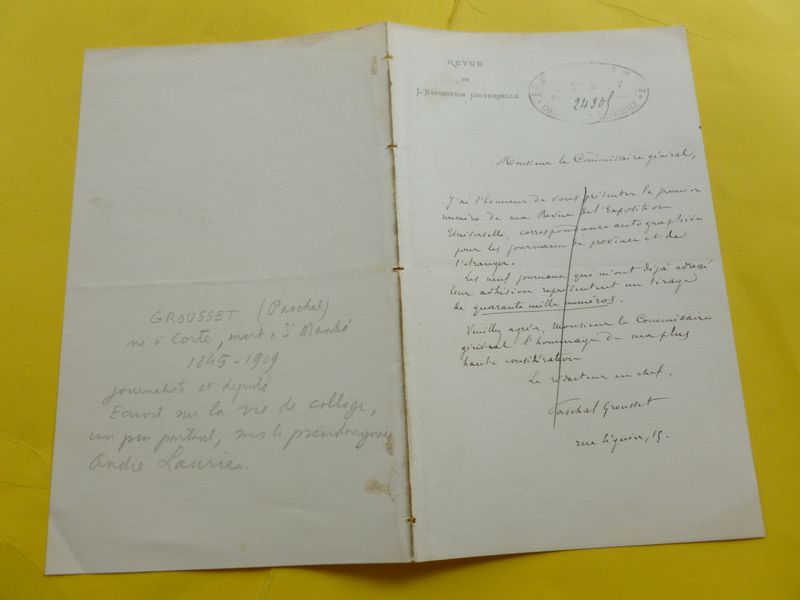 GROUSSET (Paschal)
né à Corte, mort à St Mandé
1845-1909
journaliste et député
Ecrivit sur la vie de collège,
un peu partout, sous le pseudonyme
André Laurie.
REVUE
DE
L'EXPOSITION UNIVERSELLE
24305
Monsieur le Commissaire général,
J'ai l'honneur de vous présenter le premier
numéro de ma Revue de l'Exposition
Universelle, correspondance autographiée
pour les journaux de province et de
l'étranger.
Les neuf journaux qui m'ont déjà adressé
leur adhésion représentent un tirage
de quarante mille numéros.
Veuillez agréer, Monsieur le Commissaire
général l'hommage de ma plus
haute considération
Le rédacteur en chef,
Paschal Grousset
rue 15.